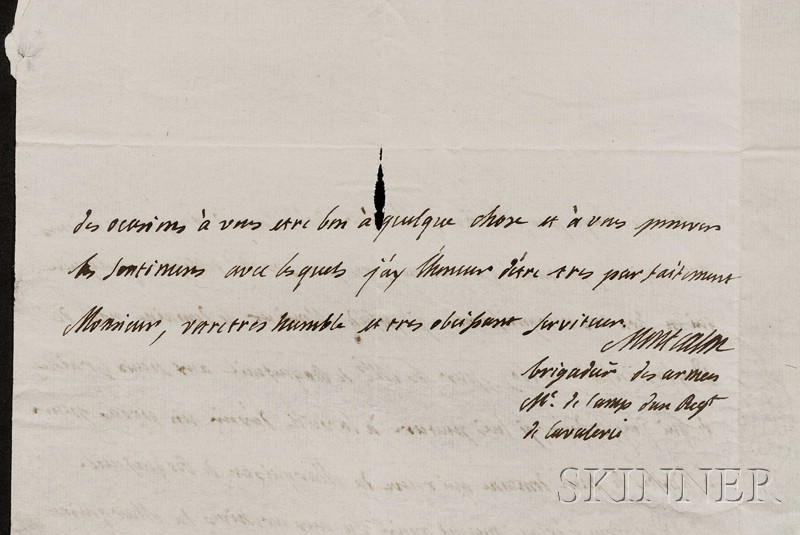 des ocasions à vous etre bon à quelque chose et à vous prouver
les sentimens avec lesquels j'ay l'honneur d'étre tres parfaitement
Monsieur, votre tres humble et tres obeissant serviteur.
Montcalm
brigadier des armees
Me. de Camp dun Regt
de Cavalerie
SKINNER